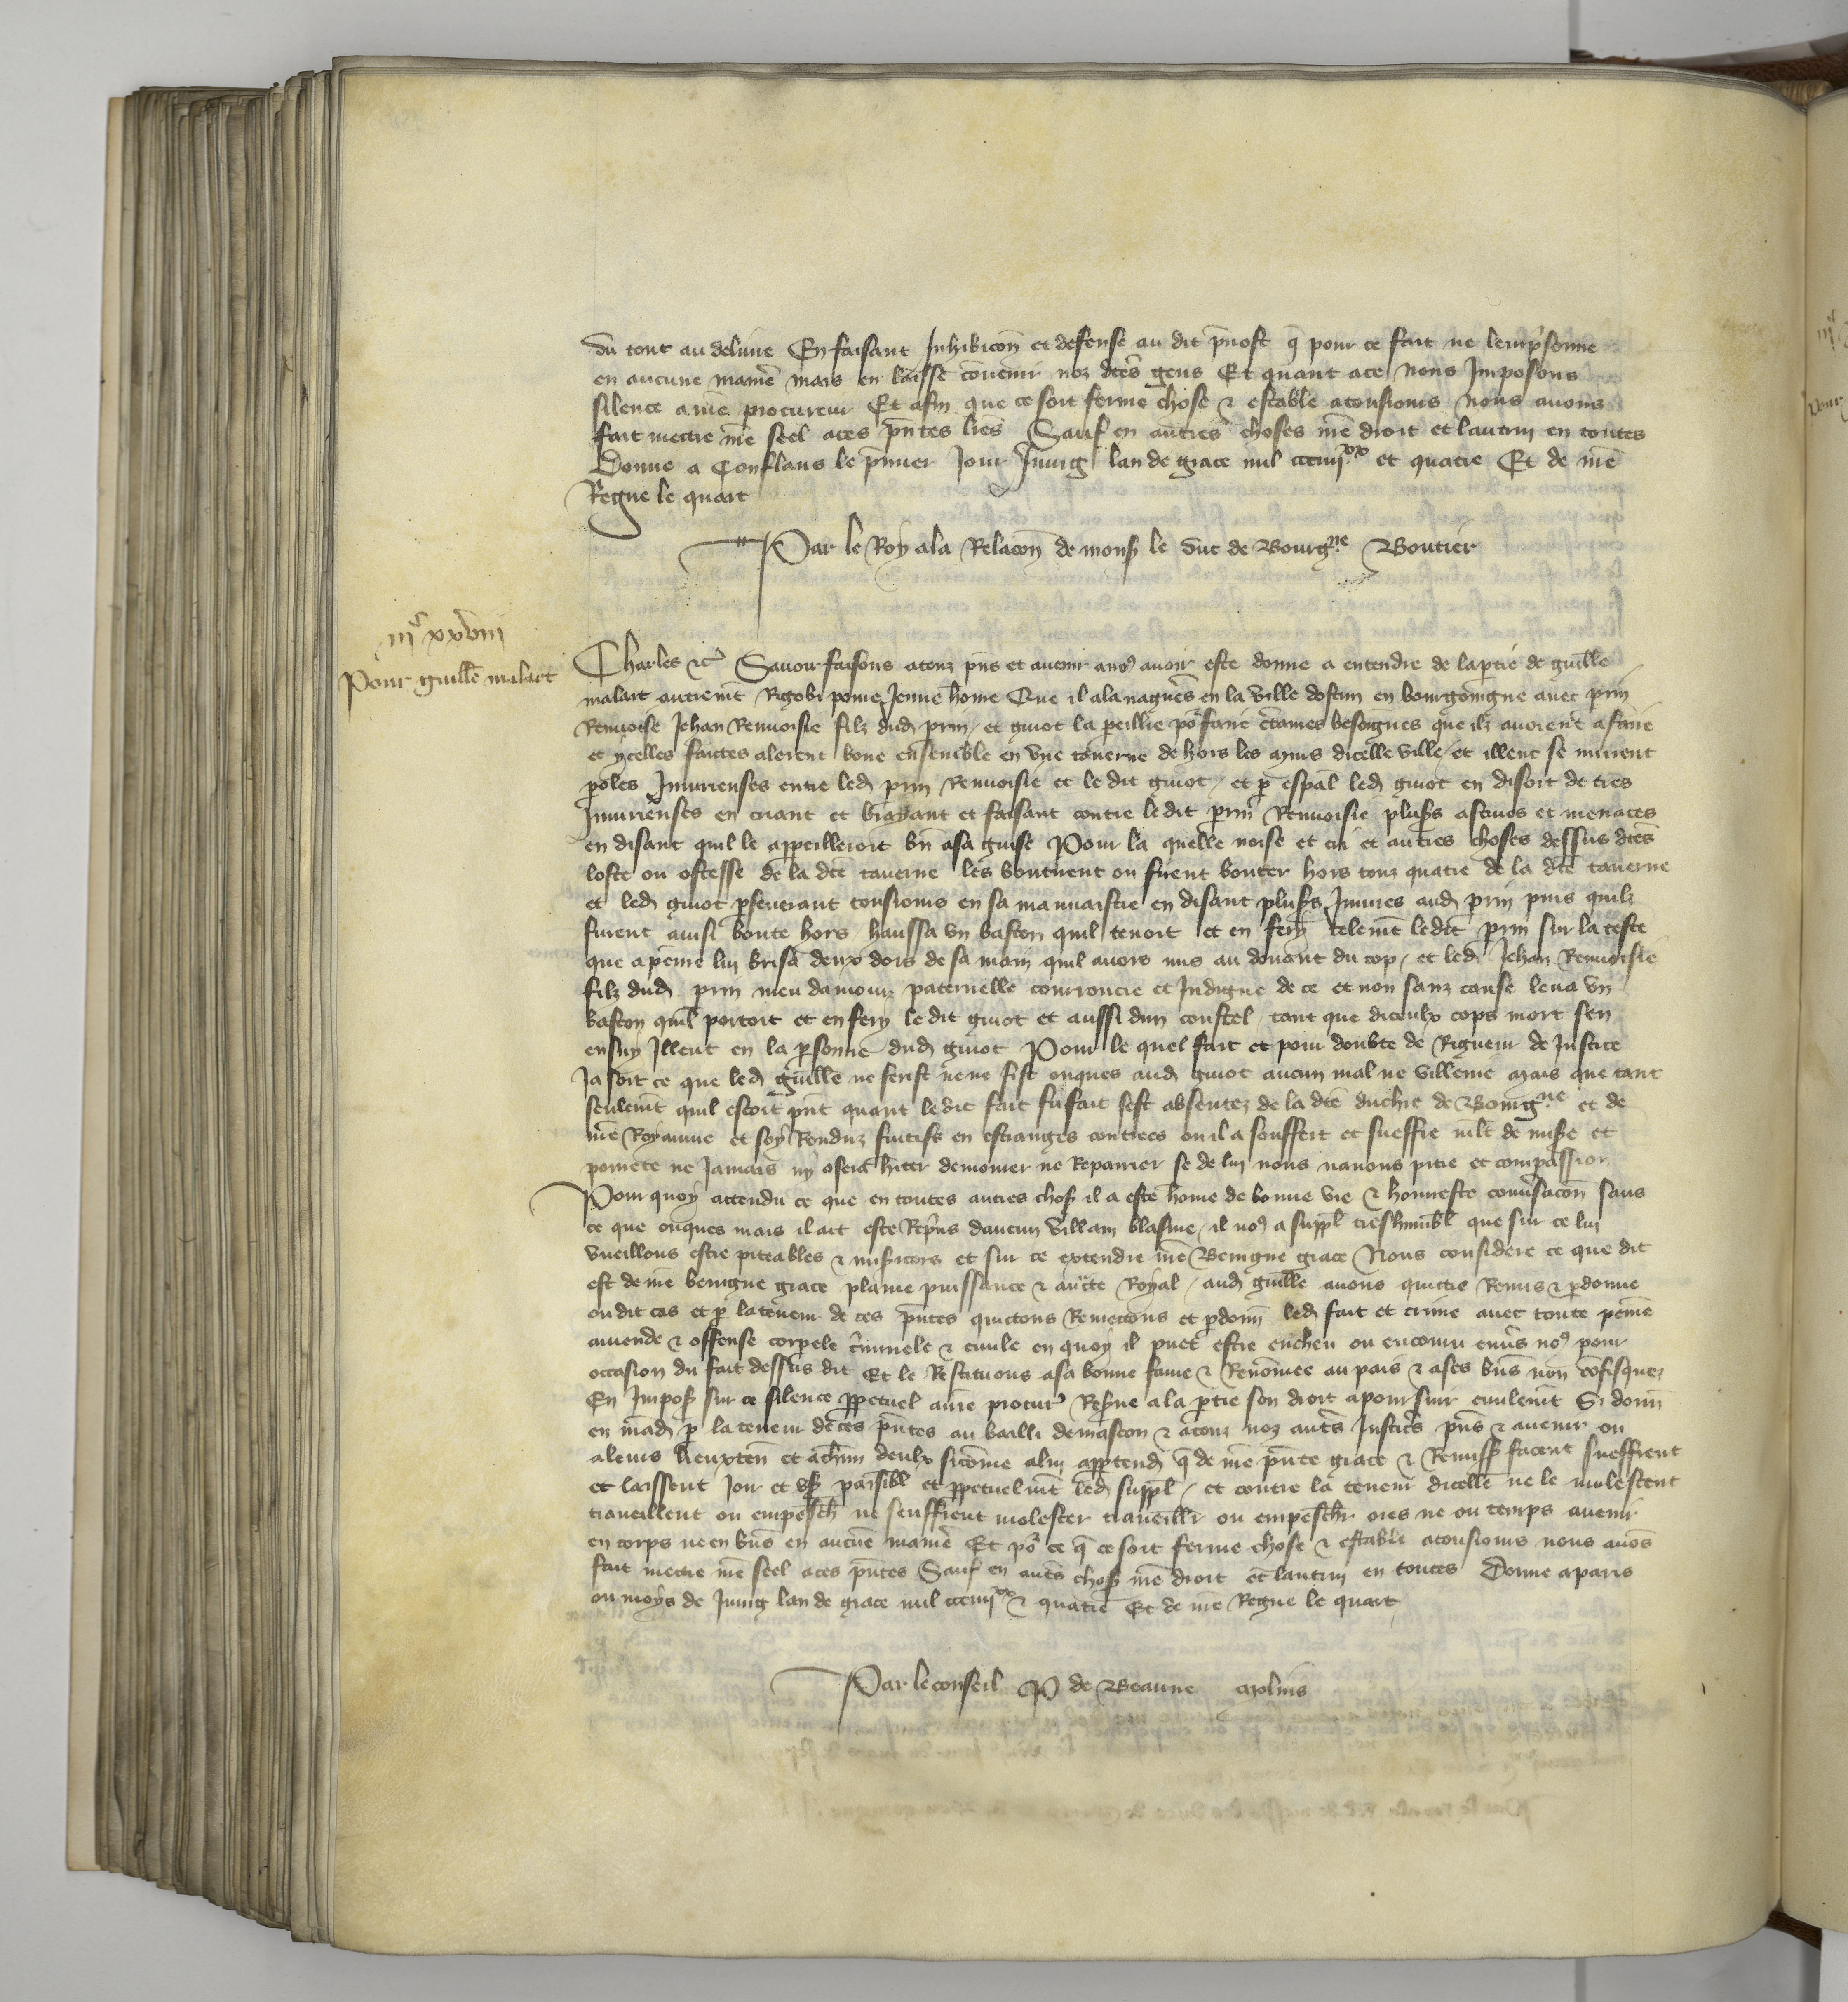 du tout au delivre En faisant Inhibicion et defense au dit prevost q̄ pour ce fait ne lemprisonne
en aucune maniē mais en laisse cōvenir noz dictes gens Et quant a ce nous Imposons
silence a nr̄e procureur Et afin que ce soit ferme chose & estable a tousiours Nous avons
fait mectre nr̄e seel a ces p̄ntes lrēs Sauf en autres choses nr̄e droit et lautruy en toutes
Donne a Conflans le premier Jour Juing lan de grace mil ccciiijxx et quatre Et de nr̄e
Regne le quart
Par le Roy a la Relacōn de mons le duc de Bourgne Boutier
iijc xxviij
Pour guillē malart
Charles &c Savoir faisons a touz p̄ns et avenir a nous avoir este donne a entendre de la p̄tie de guillē
malart autremt Jenne hōme Que il ala nagueres en la ville dostun en bourgoingne avec prin
Renvoisie Jehan Renvoisie filz dud prin et guiot la peillie po faire certaines besoignes que ilz avoient a faire
et ycelles faictes alerent boire ensemble en une taverne de hors les murs dicelle ville et illeuc se murent
p̄oles Iniurieuses entre led prin Renvoisie et le dit guiot et p̄ espāl led guiot en disoit de tres
Iniurieuses en criant et brayant et faisant contre le dit prin Renvoisie plus et menaces
en disant quil le appeilleroit bn̄ a sa guise Pour la quelle noise et cri et autres choses dessus dictes
loste ou ostesse de la dcē taverne les bouterent ou firent bouter hors touz quatre de la dcē taverne
et led guiot p̄severant tousiours en sa mauvaistie en disant plus Iniures aud prin puis quilz
furent ainsi boute hors haussa un baston quil tenoit et en fery telemt ledit prin sur la teste
que a peine lui brisa deux dois de sa main quil avoit mis au devant du cop et led Jehan Renvoisie
filz dud prin meu damour paternelle courroucie et Indigne de ce et non sanz cause leva un
baston quil portoit et en fery le dit guiot et aussi dun coustel tant que diceulx cops mort sen
ensuy Illeuc en la p̄sonne dud guiot Pour le quel fait et pour doubte de Rigueur de Justice
Ja soit ce que led guillē ne ferist ne ne fist onques aud guiot aucun mal ne villenie mais que tant
seulemt quil estoit p̄nt quant ledit fait fu fait sest absentez de la dcē duchie de Bourgne et de
nr̄e Royaume et soy Renduz fuitif en estranges contrees ou il a souffert et sueffre mlt de mis et
povrete ne Jamais ny osera hiter demourer ne Repairier se de lui nous navons pitie et compassion
Pour quoy attendu ce que en toutes autres chos il a este hōme de bonne vie & honneste convsacōn sans
ce que onques mais il ait este Repris daucun villain blasme il nous a suppl treshumbl que sur ce lui
vueillons estre piteables & misicors et sur ce extendre nr̄e Benigne grace Nous considere ce que dit
est de nr̄e benigne grace plaine puissance & aucte Royal aud guillē avons quictie Remis & p̄donne
ou dit cas et p̄ la teneur de ces p̄ntes quictons Remettons et p̄donn led fait et crime avec toute peine
amende & offense corpele c̄minele & civile en quoy il puet estre encheu ou encouru envs nous pour
occasion du fait dessus dit Et le Restituons a sa bonne fame & Renōmee au pais & a ses biens non cōfisquez
En Impos sur ce silence ppetuel a nr̄e procur Resve a la p̄tie son droit a poursuir civilemt Si donn
en mād p̄ la teneur de ces p̄ntes au bailli de mascon & a touz noz auts Justiciers p̄ns & avenir ou
a leurs lieuxten et a chūn deulx sicōme a lui apptendra q̄ de nr̄e p̄nte grace & Remiss facent sueffrent
et laissent Joir et us paisibl et ppetuelmt led suppl et contre la teneur dicelle ne le molestent
traveillent ou empesch ne seuffrent molester traveillr ou empeschr ores ne ou temps avenir
en corps ne en biēs en aucune maniē Et po ce q̄ ce soit ferme chose & estable a tousiours nous avōs
fait mectre nr̄e seel a ces p̄ntes Sauf en auts chos nr̄e droit et lautruy en toutes Donne a paris
ou moys de Juing lan de grace mil ccciiijxx & quatre Et de nr̄e Regne le quart
Par le conseil P de Beaune